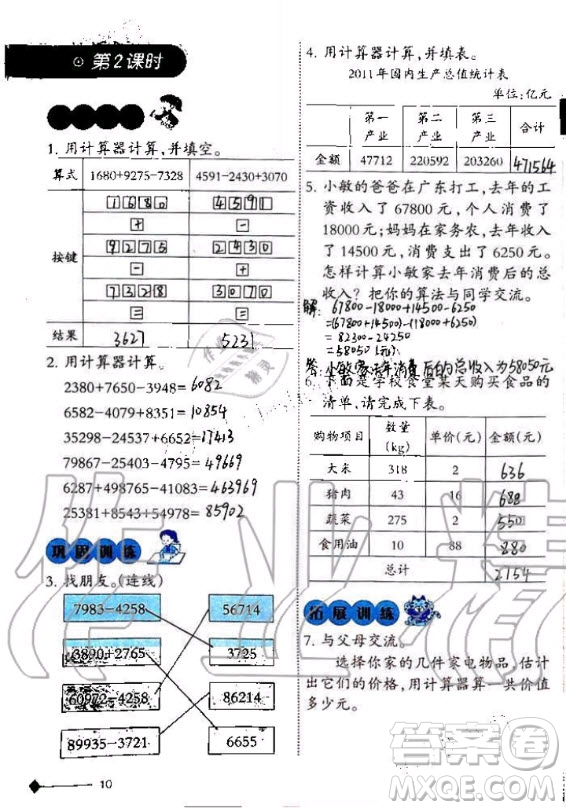 第2课时
1. 用计算器计算,并填空。
算式 1680+9275-7328 4591-2430+3070
1 6 8 0 4 5 9 1
+ -
按键 9 2 7 5 2 4 3 0
- +
7 3 2 8 3 0 7 0
= =
结果 3627 5231
2. 用计算器计算。
2380+7650-3948=6082
6582-4079+8351=10854
35298-24537+6652=17413
79867-25403-4795=49669
6287+498765-41083=463969
25381+8543+51978=85902
巩固训练
3. 找朋友。(连线)
7983-4258 56714
3890+2765 3725
60972-4258 86214
89935-3721 6655
10
4. 用计算器计算,并填表。
2011年国内生产总值统计表
单位:亿元
第一产业 第二产业 第三产业 合计
金额 47712 220592 203260 471564
5. 小敏的爸爸在广东打工,去年的工
资收入了67800元,个人消费了
18000元;妈妈在家务农,去年收入
了14500元,消费支出了6250元。
怎样计算小敏家去年消费后的总
收入?把你的算法与同学交流。
解: 67800-18000+14500-6250
=(67800+14500)-(18000+6250)
=82300-24250
=58050(元)
答:小敏家去年消费后的总收入为58050元
6. 下面是学校食堂某天购买食品的
清单,请完成下表。
购物项目 数量(kg) 单价(元) 金额(元)
大米 318 2 636
猪肉 43 16 688
蔬菜 275 2 550
食用油 10 88 880
总计 2154
拓展训练
7. 与父母交流。
选择你家的几件家电物品,估计
出它们的价格,用计算器算一共价值
多少元。
作业精灵
答案圈
MXQE.COM